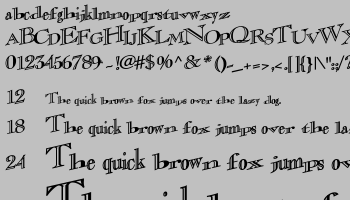 abcdefghijklmnopqrstuvwxyz
ABCDEFGHIJKLMNOPQRSTUVWX
0123456789 ~!@#$%^&*()-_+=>,<.[]{}|\"::/?
12 The quick brown fox jumps over the lazy dog.
18 The quick brown fox jumps over the la
24 The quick brown fox jumps ov